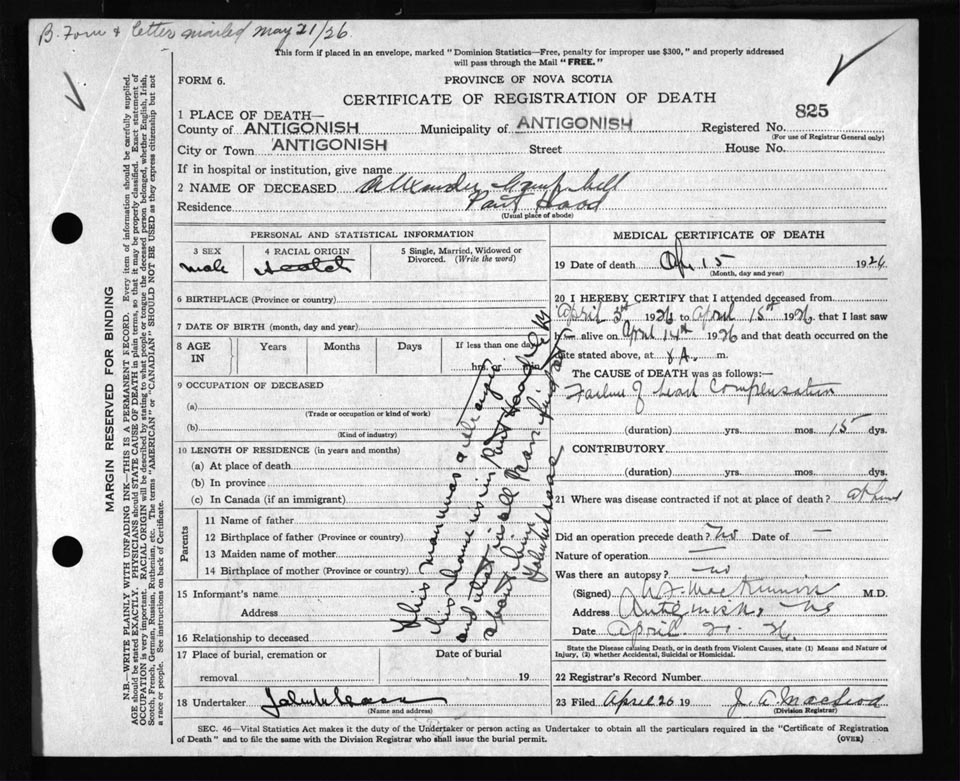 B. Form & letter mailed May 21/26.
This form if placed in an envelope, marked "Dominion Statistics—Free, penalty for improper use $300," and properly addressed
will pass through the Mail "FREE."
FORM 6.
PROVINCE OF NOVA SCOTIA
CERTIFICATE OF REGISTRATION OF DEATH
825
1 PLACE OF DEATH—
County of ANTIGONISH Municipality of ANTIGONISH Registered No.
(For use of Registrar General only)
City or Town ANTIGONISH Street House No.
If in hospital or institution, give name
2 NAME OF DECEASED Alexander Campbell
Residence Port Hood
(Usual place of abode)
PERSONAL AND STATISTICAL INFORMATION
3 SEX
male
4 RACIAL ORIGIN
Scotch
5 Single, Married, Widowed or
Divorced. (Write the word)
6 BIRTHPLACE (Province or country)
7 DATE OF BIRTH (month, day and year)
8 AGE IN Years Months Days If less than one day
hrs.
9 OCCUPATION OF DECEASED
(a)
(Trade or occupation or kind of work)
(b)
(Kind of industry)
10 LENGTH OF RESIDENCE (in years and months)
(a) At place of death
(b) In province
(c) In Canada (if an immigrant)
Parents
11 Name of father
12 Birthplace of father (Province or country)
13 Maiden name of mother
14 Birthplace of mother (Province or country)
15 Informant's name
Address
16 Relationship to deceased
17 Place of burial, cremation or
removal
Date of burial
19
18 Undertaker
(Name and address)
This man was a
his home is in Port Hood
and that is all
about him
MEDICAL CERTIFICATE OF DEATH
19 Date of death Apr 15 1926
(Month, day and year)
20 I HEREBY CERTIFY that I attended deceased from
April 1926 to April 15th 1926, that I last saw
alive on April 14th 1926 and that death occurred on the
date stated above, at 8 A. m.
The CAUSE OF DEATH was as follows:—
Failure of heart Compensation
(duration) yrs. mos. 15 dys.
CONTRIBUTORY
(duration) yrs. mos. dys.
21 Where was disease contracted if not at place of death?
Did an operation precede death? No Date of —
Nature of operation —
Was there an autopsy? no
(Signed) MacKinnon M.D.
Address Antigonish, NS
Date April. 21. 26.
State the Disease causing Death, or in death from Violent Causes, state (1) Means and Nature of
Injury, (2) whether Accidental, Suicidal or Homicidal.
22 Registrar's Record Number
23 Filed April 26 19 J. A. MacLeod
(Division Registrar)
SEC. 46—Vital Statistics Act makes it the duty of the Undertaker or person acting as Undertaker to obtain all the particulars required in the "Certificate of Registration
of Death" and to file the same with the Division Registrar who shall issue the burial permit.
(OVER)
MARGIN RESERVED FOR BINDING
N.B.—WRITE PLAINLY WITH UNFADING INK—THIS IS A PERMANENT RECORD. Every item of information should be carefully supplied.
AGE should be stated EXACTLY. PHYSICIANS should STATE CAUSE OF DEATH in plain terms, so that it may be properly classified. Exact statement of
OCCUPATION is very important. RACIAL ORIGIN will be described by stating to what people or tongue the deceased person belonged, whether English, Irish,
Scotch, French, German, Russian, Ruthenian, etc. The terms "AMERICAN" or "CANADIAN" SHOULD NOT BE USED as they express citizenship but not
a race or people. See instructions on back of Certificate.